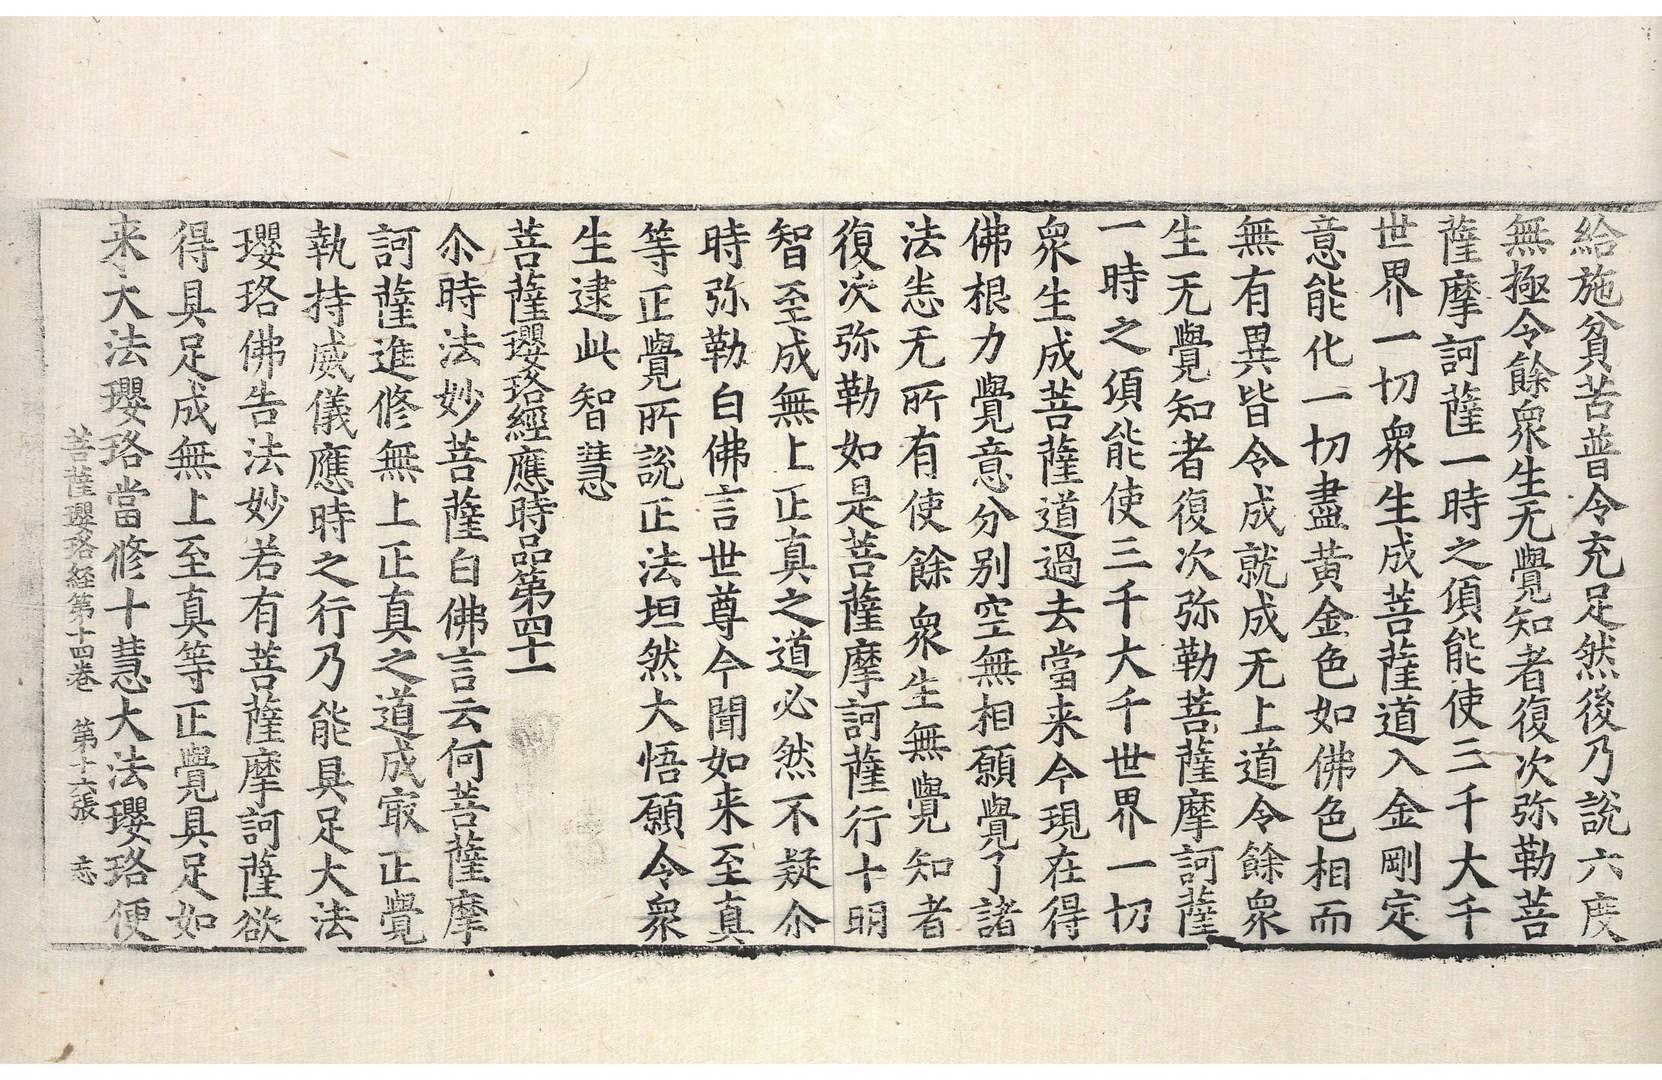 給施貧苦普令充足然後乃說六度
無極令餘衆生无覺知者復次弥勒菩
薩摩訶薩一時之湏能使三千大千
世界一切衆生成菩薩道入金剛定
意能化一切盡黃金色如佛色相而
無有異皆令成就成无上道令餘衆
生无覺知者復次弥勒菩薩摩訶薩
一時之湏能使三千大千世界一切
衆生成菩薩道過去當来今現在得
佛根力覺意分别空無相願覺了諸
法恙无所有使餘衆生無覺知者
復次弥勒如是菩薩摩訶薩行十明
智至成無上正真之道必然不疑尒
時弥勒白佛言世尊今聞如来至真
等正覺所說正法坦然大悟願令衆
生逮此智慧
菩薩瓔珞經應時品第四十一
尒時法妙菩薩白佛言云何菩薩摩
訶薩進修無上正真之道成㝡正覺
執持威儀應時之行乃能具足大法
瓔珞佛告法妙若有菩薩摩訶薩欲
得具足成無上至真等正覺具足如
来大法瓔珞當修十慧大法瓔珞便
菩薩瓔珞経第十四卷 第十六張 志